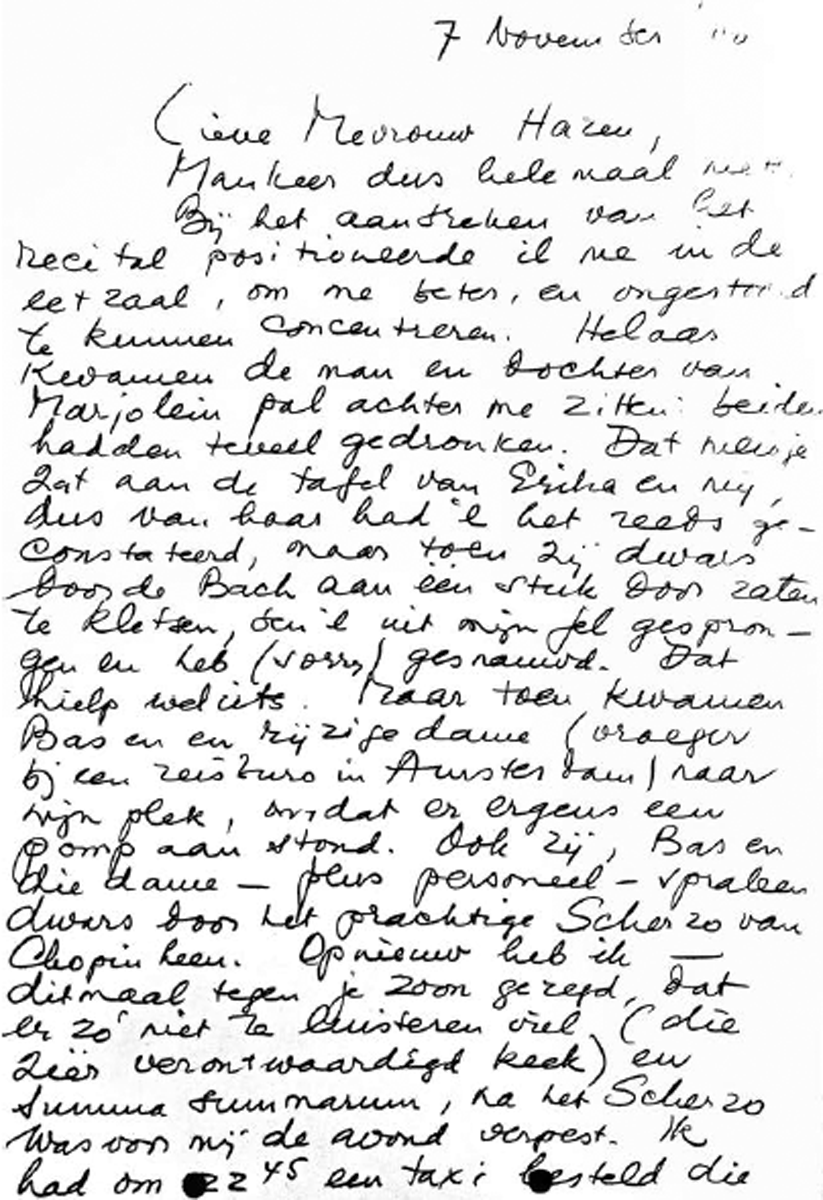 7 November
Lieve Mevrouw Hazeu,
Mankeer dus helemaal niets.
Bij het aantreken van het
recital positioneerde ik me in de
eetzaal, om me beter, en ongestoord
te kunnen concentreren. Helaas
kwamen de man en dochter van
Marjolein pal achter me zitten: beiden
hadden teveel gedronken. Dat meisje
zat aan de tafel van Erika en mij,
dus van haar had 'k het reeds ge-
constateerd, maar toen zij dwars
door de Bach aan één stuk door zaten
te kletsen, ben 'k uit mijn vel gespron-
gen en heb (sorry) gesnauwd. Dat
hielp wel iets. Maar toen kwamen
Bas en en rijzige dame (vroeger
bij een reisburo in Amsterdam) naar
mijn plek, omdat er ergens een
pomp aan stond. Ook zij, Bas en
die dame - plus personeel - spraken
dwars door het prachtige Scherzo van
Chopin heen. Opnieuw heb ik -
ditmaal tegen je zoon gezegd, dat
er zó niet te luisteren viel, (die
zéér verontwaardigd keek) en
summa summarum, na het Scherzo
was voor mij de avond verpest. Ik
had om 22 45 een taxi besteld die